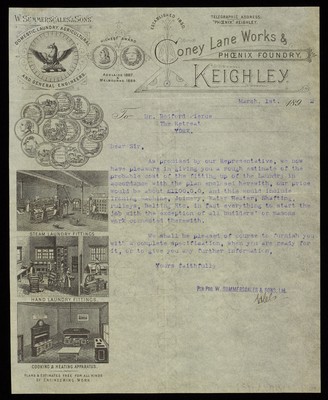 W. SUMMERSCALES & SONS LD
DOMESTIC LAUNDRY, AGRICULTURAL
AND GENERAL ENGINEERS
HIGHEST AWARD
ADELAIDE 1887
MELBOURNE 1888
ESTABLISHED 1850
TELEGRAPHIC ADDRESS:
"PHŒNIX" KEIGHLEY.
Coney Lane Works &
PHŒNIX FOUNDRY,
KEIGHLEY.
March, 1st. 189
To Dr. Bedford Pierce
The Retreat
YORK.
Dear Sir,
As promised by our Representative, we now
have pleasure in giving you a rough estimate of the
probable cost of the fitting up of the Laundry in
accordance with the plan enclosed herewith, our price
would be about and this would include
Fixing, Joinery, Water Heater, Shafting,
Pulleys, Belting, &c, in fact everything to start the
job with the exception of all Builders' or masons
work connected therewith.
We shall be pleased of course to furnish you
with complete specification, when you are ready for
it, or to give you any further information,
Yours Faithfully
PER PRO W. SUMMERSCALES & SONS, LD.
STEAM LAUNDRY FITTINGS
HAND LAUNDRY FITTINGS
COOKING & HEATING APPARATUS.
PLANS & ESTIMATES FREE FOR ALL KINDS
OF ENGINEERING WORK